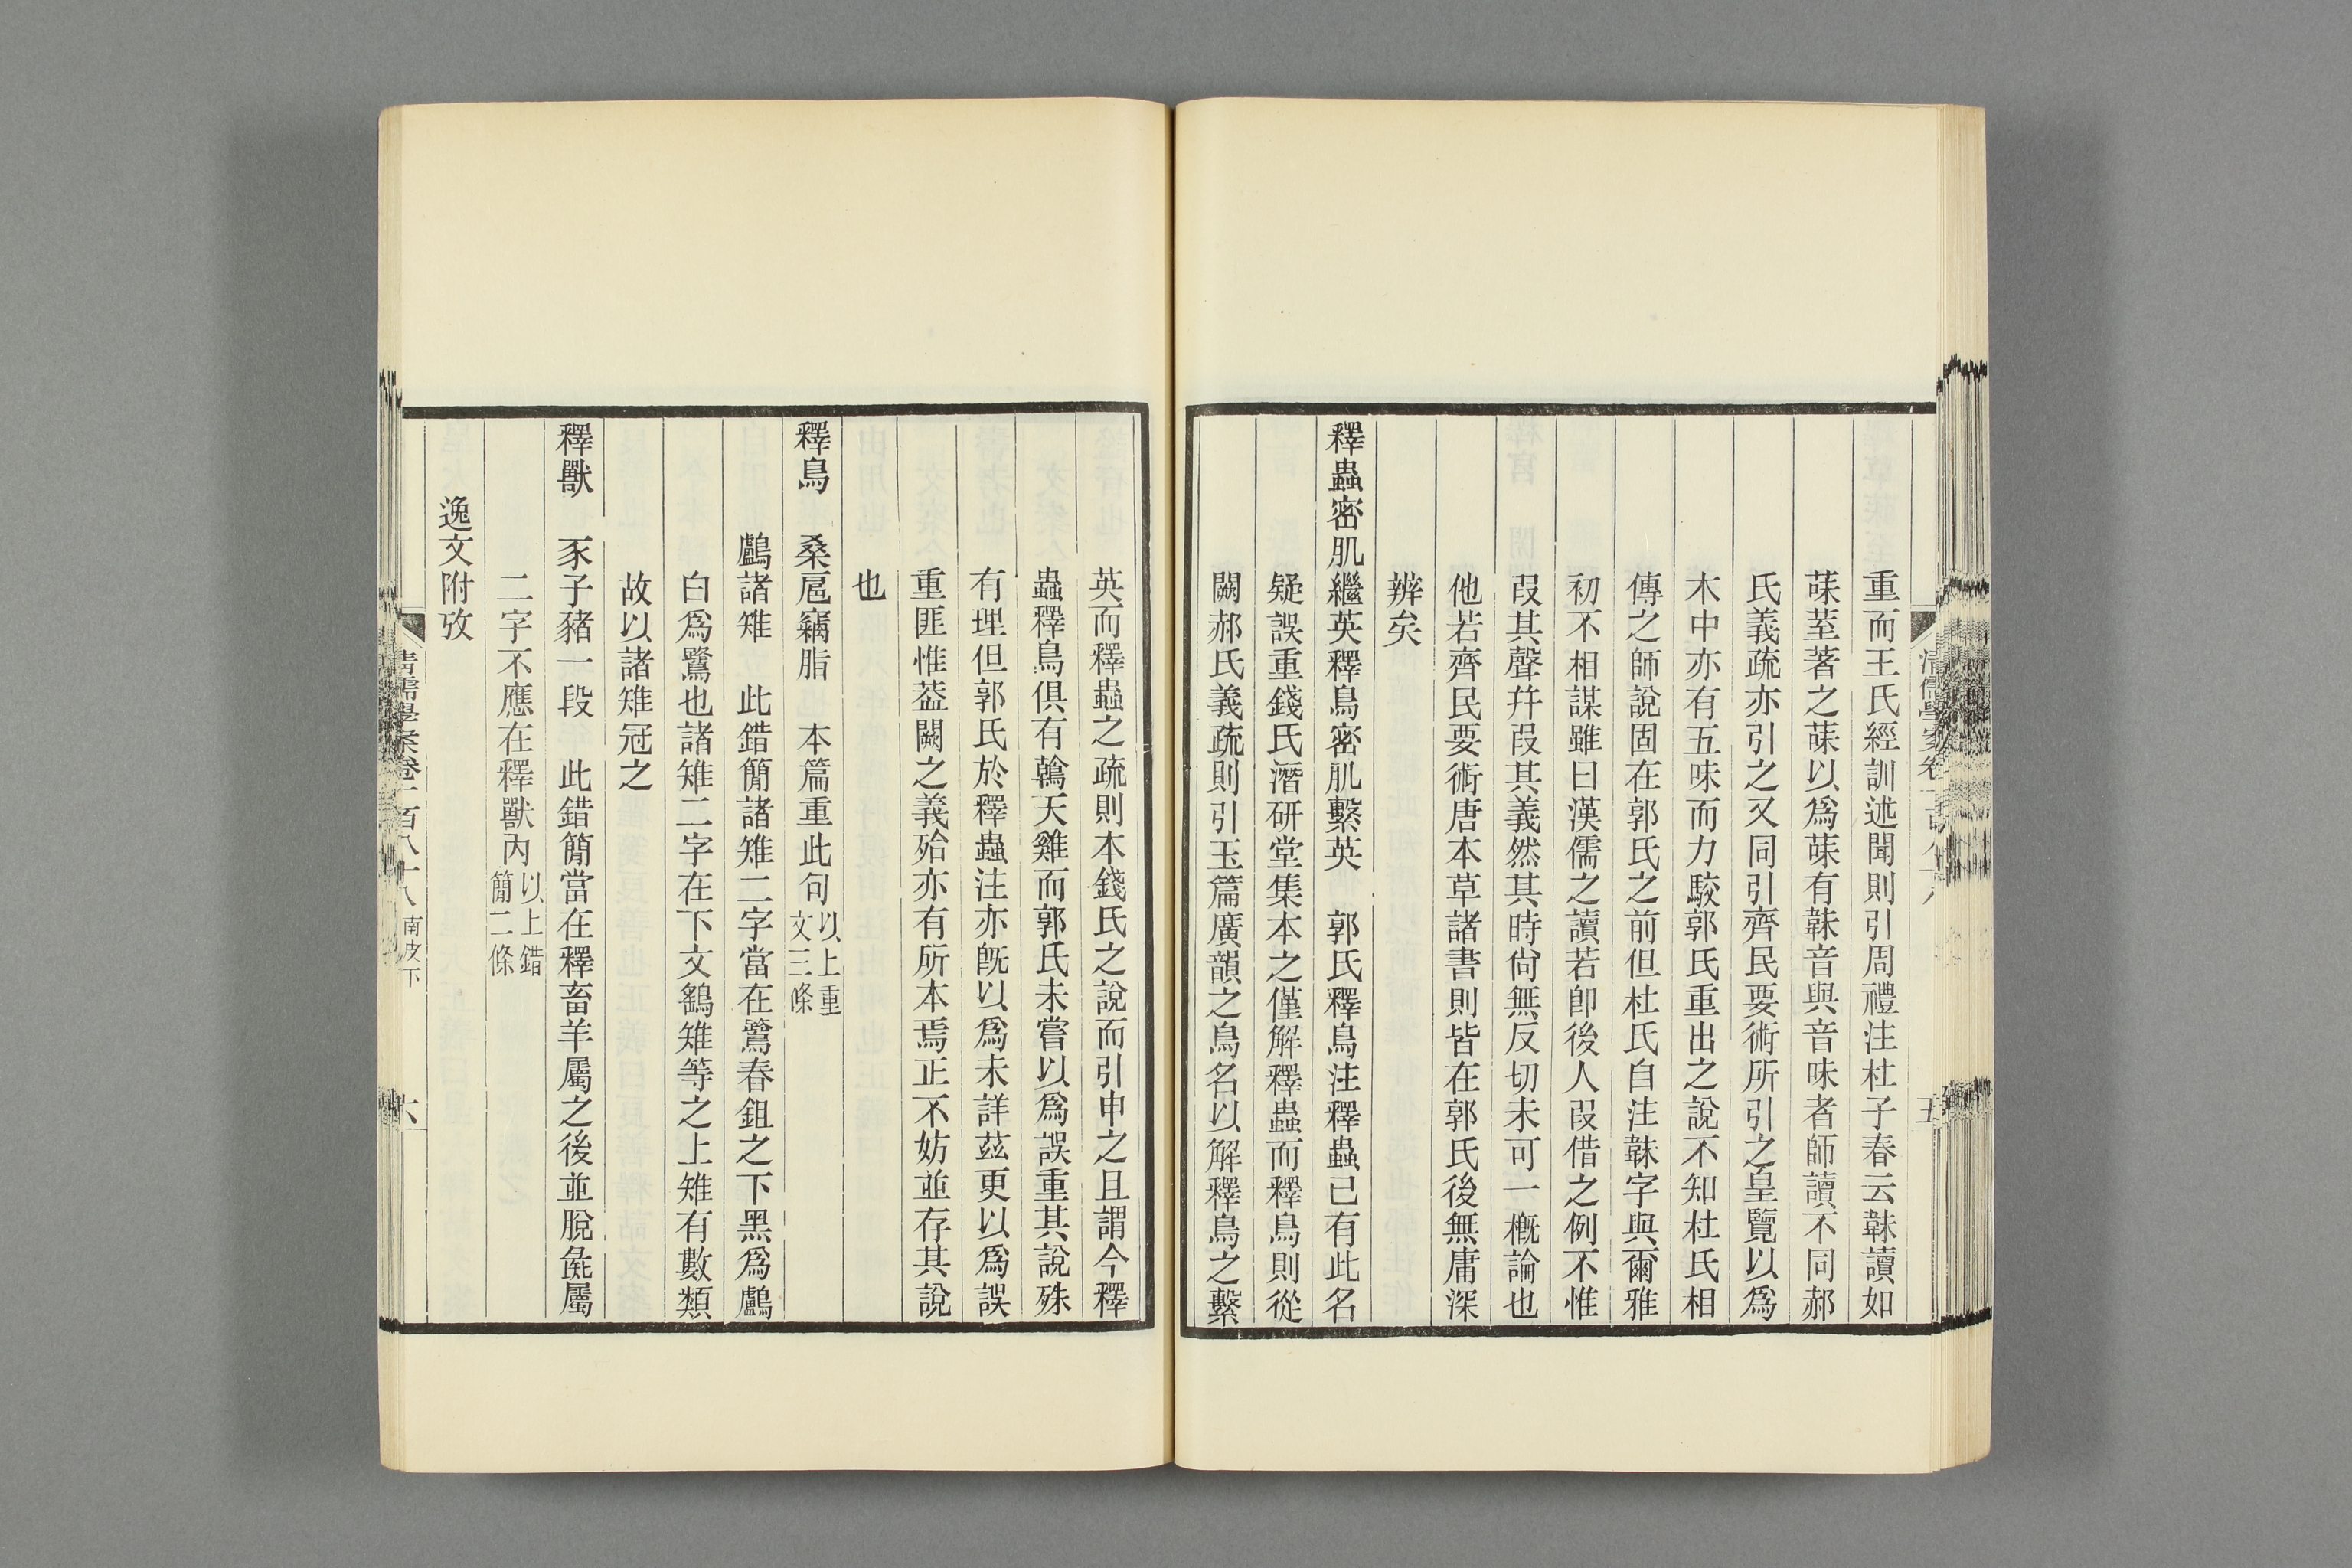 重而王氏經訓述聞則引周禮注杜子春云韎讀如
菋荎著之菋以爲菋有韎音與音味者師讀不同郝
氏義疏亦引之又同引齊民要術所引之皇覽以爲
木中亦有五味而力駮郭氏重出之說不知杜氏相
傳之師說固在郭氏之前但杜氏自注韎字與爾雅
初不相謀雖曰漢儒之讀若卽後人叚借之例不惟
叚其聲幷叚其義然其時尙無反切未可一槪論也
他若齊民要術唐本草諸書則皆在郭氏後無庸深
辨矣
釋蟲密肌繼英釋鳥密肌繫英 郭氏釋鳥注釋蟲已有此名
疑誤重錢氏潛硏堂集本之僅解釋蟲而釋鳥則從
闕郝氏義疏則引玉篇廣韻之鳥名以解釋鳥之繫
英而釋蟲之疏則本錢氏之說而引申之且謂今釋
蟲釋鳥俱有鶾天雞而郭氏未嘗以爲誤重其說殊
有理但郭氏於釋蟲注亦旣以爲未詳茲更以爲誤
重匪惟葢闕之義殆亦有所本焉正不妨並存其說
也
釋鳥 桑扈竊脂 本篇重此句以上重文三條
鸕諸雉 此錯簡諸雉二字當在鷺春鉏之下黑爲鸕
白爲鷺也諸雉二字在下文鷂雉等之上雉有數類
故以諸雉冠之
釋獸 豕子豬一段 此錯簡當在釋畜羊屬之後並脫彘屬
二字不應在釋獸內以上錯簡二條
逸文附攷
清儒學案卷一百八十八 南皮下
六